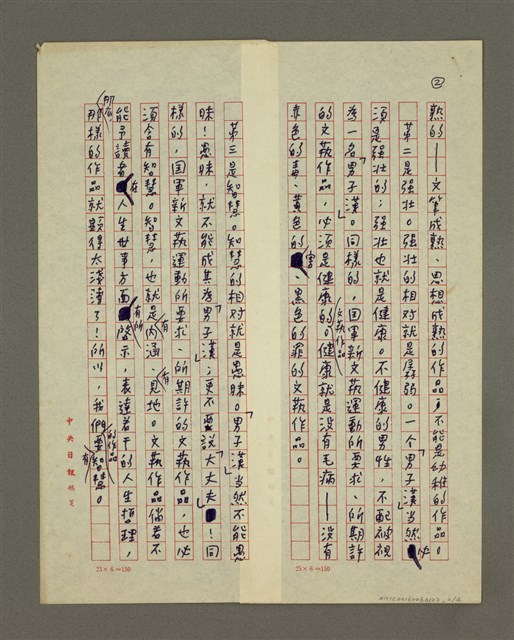 ②
熟的——文筆成熟、思想成熟的作品，不能是幼稚的作品。
第二是强壯。强壯的相對就是孱弱。一个「男子漢」當然必
須是强壯的；强壯也就是健康。不健康的男性，不配被視
為一名「男子漢」。同樣的，国軍新文藝運動所要求、所期許
的文藝作品，必須是健康的。文藝作品健康就是沒有毛病——沒有
赤色的毒、黃色的害、黑色的罪的文藝作品。
第三是智慧。智慧的相對就是愚昧。「男子漢」當然不能愚
昧！愚昧，就不能成其為「男子漢」；更不要說「大丈夫」！同
樣的，国軍新文藝運動所要求、所期許的文藝作品，也必
須含有智慧。智慧，也就是有內涵、有見地。文藝作品倘若不
能予讀者在人生世事方面有所啓示，表達若干的人生哲理，
那麽那樣的作品就顯得太淺薄了！所以，我們要有智慧的作品。
中央日報稿箋
25×6=150
25×6=150